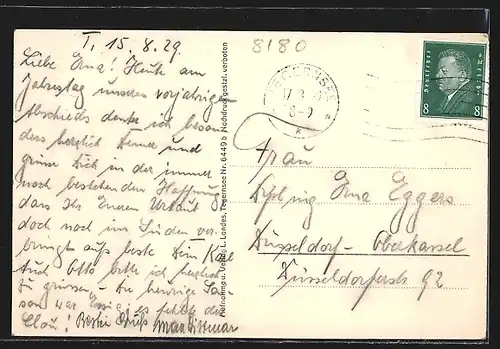 T. 15. 8. 29
Liebe Erna! Heute am
Jahrestag unseres vorjährigen
Abschieds denke ich beson
ders herzlich Deiner und
grüsse Dich in der immer
noch bestehenden Hoffnung
dass Ihr Eueren Urlaub
doch noch im Süden ver-
bringt aufs beste Dein Karl
Auch Otto bitte ich herzlich
zu grüssen, – Die heurige Sai
son war es fehlt der
Clou! Beste Grüße
Aufnahme u. Verlag L. Landes, Tegernsee Nr. 6449b Nachdruck gesetzl. verboten
8180
TEGERNSEE
8-9
Deutsches Reich
8 8
Frau
Dipl. ing. Erna Eggers
Düsseldorf – Oberkassel
Düsseldorferstr 92